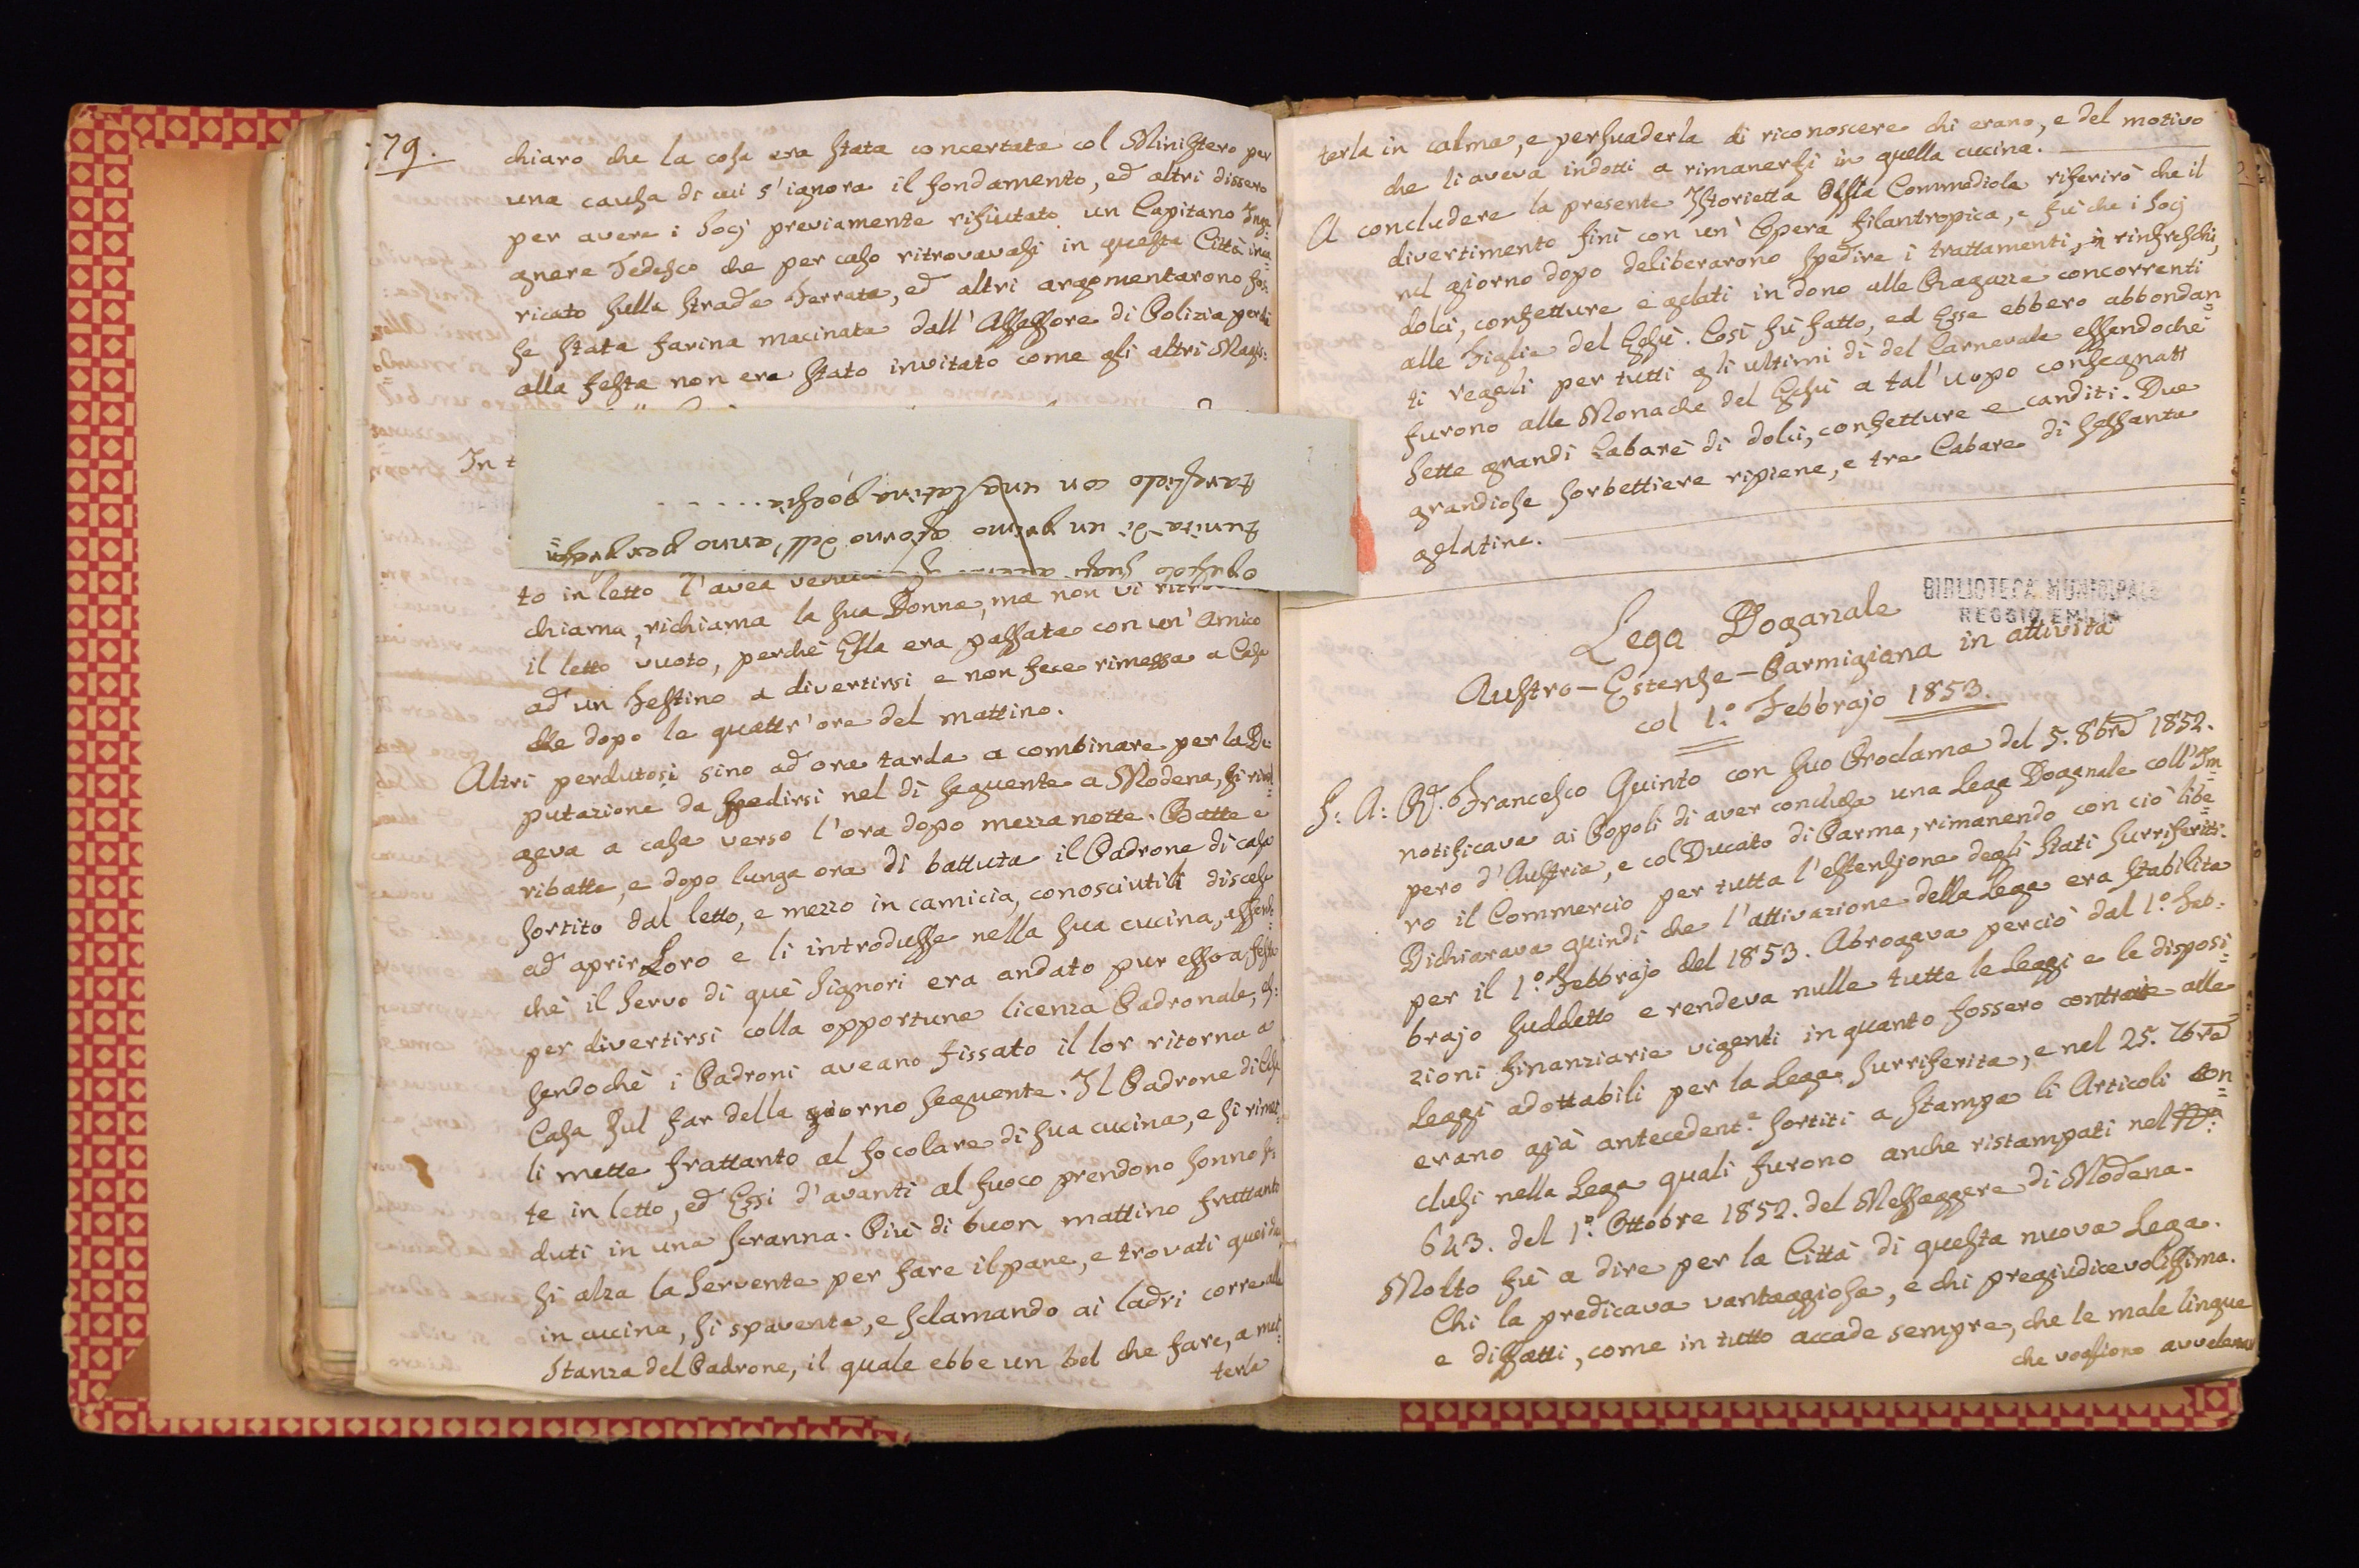 79.
chiaro che la cosa era stata concertata col Ministero per
una causa di cui s'ignora il fondamento, ed altri dissero
per avere i Socj previamente rifiutato un Capitano Inge:
gnere Tedesco che per caso ritrovavasi in questa Città inca:
ricato sulla Strada Ferrata, ed altri argomentarono fos:
se stata farina macinata dall'Assessore di Polizia perchè
alla festa non era stato invitato come gli altri Magis:
In t
tunità di un primo giorno dell'anno per
con una latina poesia......
to in letto l'avea
chiama, richiama la sua Donna, ma non vi
il letto vuoto, perchè Ella era passata con un' Amico
ad un Festino a divertirsi e non fece rimessa a Casa
che dopo le quattr'ore del mattino.
Altri perdutosi sino ad ora tarda a combinare per la De:
putazione da spedirsi nel dì seguente a Modena, si rivol=
geva a casa verso l'ora dopo mezza notte. Batte e
ribatte, e dopo lunga ora di battuta il Padrone di casa
sortito dal letto, e mezzo in camicia, conosciutili discese
ad aprir Loro e li introdusse nella sua cucina, essen=
chè il Servo di què Signori era andato pur esso a festa
per divertirsi colla opportuna licenza Padronale, es:
sendochè i Padroni aveano fissato il lor ritorno a
Casa sul far della giorno seguente. Il Padrone di Casa
li mette frattanto al focolare di sua cucina, e si rimet:
te in letto, ed Essi d'avanti al fuoco prendono sonno se
duti in una scranna. Più di buon mattino frattanto
si alza la Servente per fare il pane, e trovati quei due
in cucina, si spaventa, e sclamando ai ladri corre alla
Stanza del Padrone, il quale ebbe un bel che fare, a met=
terla
terla in calma, e persuaderla di riconoscere chi erano, e del motivo
che li aveva indotti a rimanersi in quella cucina.
A concludere la presente Istorietta Commediola riferirò che il
divertimento finì con un' Opera filantropica, e fù che i Socj
nel giorno dopo deliberarono spedire i trattamenti, in rinfreschi,
dolci, confetture e gelati in dono alle Ragazze concorrenti
alle Figlie del Gesù. Così fù fatto, ed Esse ebbero abbondan=
ti regali per tutti gli ultimi dì del Carnevale essendochè
furono alle Monache del Gesù a tal'uopo consegnati
Sette grandi Cabarè di dolci, confetture e canditi. Due
grandiose sorbettiere ripiene, e tre Cabare di sessanta
gelatine.
BIBLIOTECA MUNICIPALE
REGGIO EMILIA
Lega Doganale
Austro-Estense-Parmigiana in attività
col 1.° Febbrajo 1853.
S: A: R. Francesco Quinto con suo Proclama del 5. 8bre 1852.
notificava ai Popoli di aver conclusa una Lega Doganale coll'Im=
pero d'Austria, e col Ducato di Parma, rimanendo con ciò libe=
ro il Commercio per tutta l'estensione degli Stati surriferiti.
Dichiarava quindi che l'attivazione della Lega era stabilita
per il 1.° Febbrajo del 1853. Abrogava perciò dal 1.° Feb:
brajo suddetto e rendeva nulle tutte le Leggi e le disposi=
zioni finanziarie vigenti in quanto fossero contrarie alle
Leggi adottabili per la Lega surriferita, e nel 25. 7bre
erano già antecedent.e sortiti a stampa li Articoli con=
clusi nella Lega quali furono anche ristampati nel N.°
643. del 1.° Ottobre 1852. del Messaggere di Modena.
Molto fù a dire per la Città di questa nuova Lega.
Chi la predicava vantaggiosa, e chi pregiudicevolissima.
e difatti, come in tutto accade sempre, che le male lingue
che vogliono avvelenar